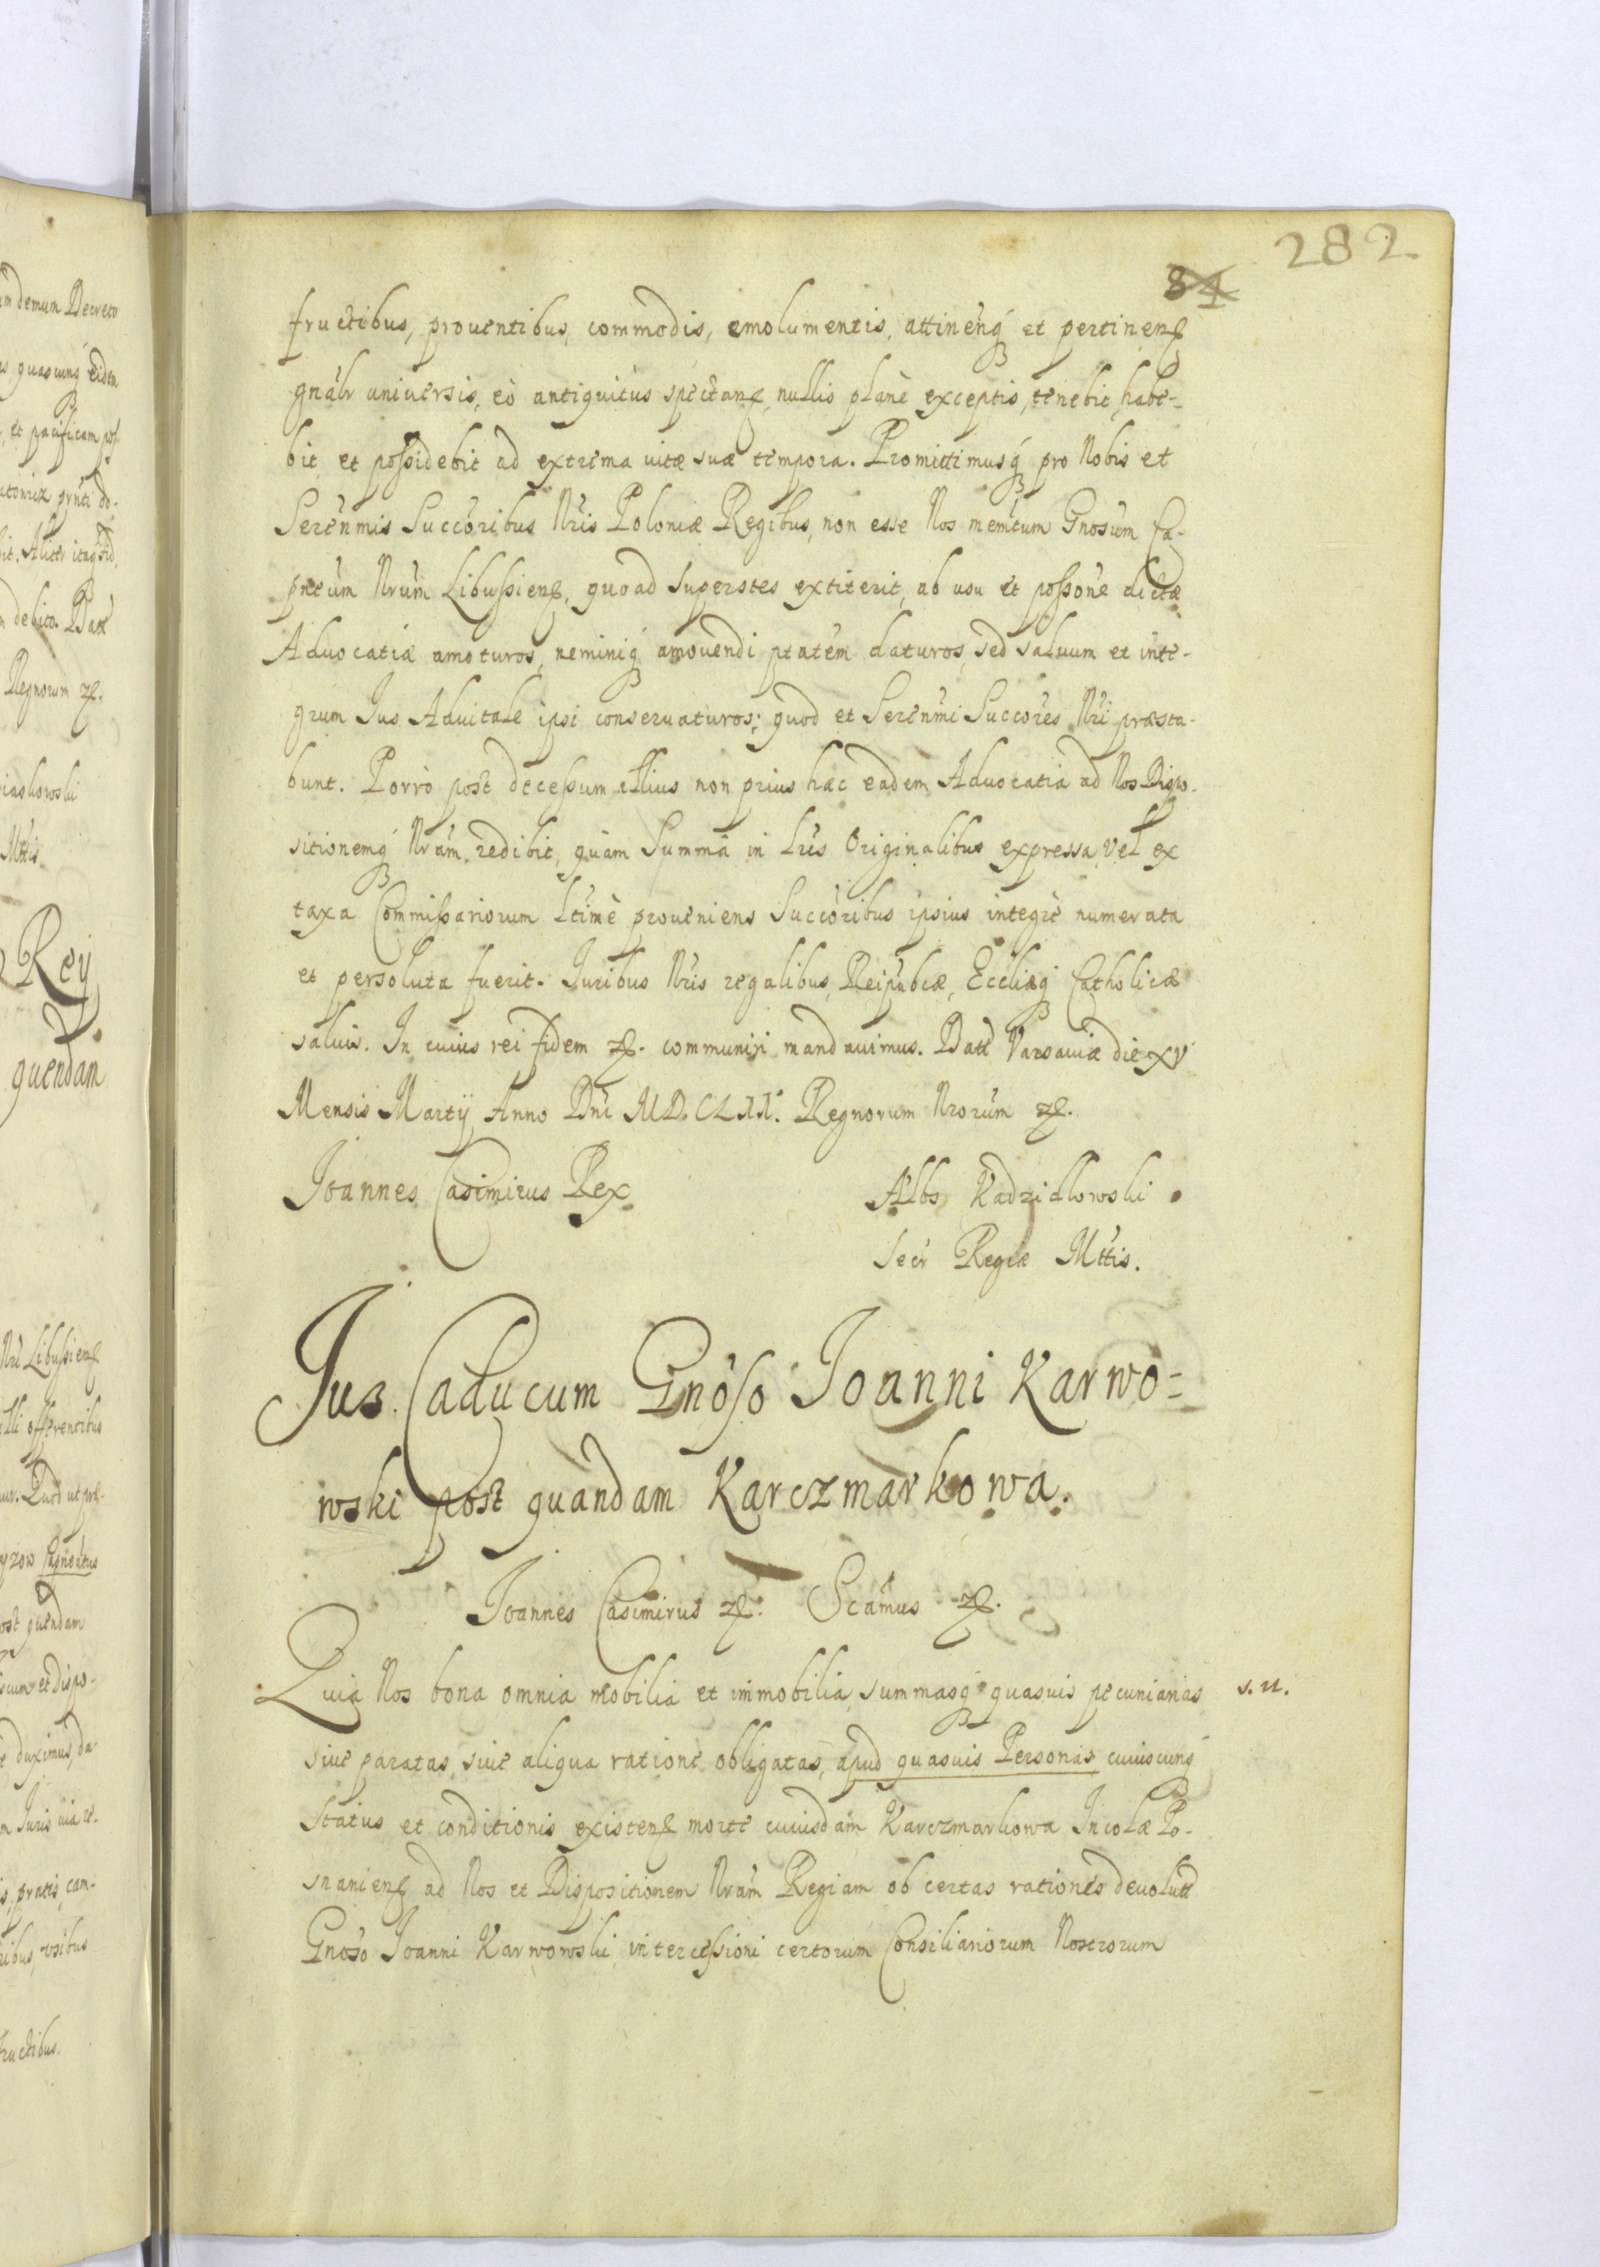 282
84
fructibus, prouentibus, commodis, emolumentis, attinenq́ et pertinen
gnalr universis, eò antiquitus spectan, nullis planè exceptis, tenebit, habe-
bit et possidebit ad extrema uitæ suæ tempora. Promittimusq́ pro Nobis et
Serenmis Succoribus Nris Poloniæ Regibus, non esse Nos memtum Gnosum Ca-
pneum Nrum Libussien, quoad superstes extiterit, ab usu et possone dictæ
Aduocatiæ amoturos, neminiq́ amouendi ptatem daturos, sed saluum et inte-
grum Jus Aduitale ipsi conseruaturos; quod et Serenmi Succores Nri præsta-
bunt. Porrò post decessum illius non prius hæc eadem Aduocatia ad Nos Dispo-
sitionemq́ Nram redibit, quàm Summa in Lris Originalibus expressa, vel ex
taxa Commissariorum Ltimè proueniens Succoribus ipsius integrè numerata
et persoluta fuerit. Juribus Nris regalibus, Reipubcæ, Eccliæq́ Catholicæ
saluis. In cuius rei fidem etc. communiji mandauimus. Datt Varsauiæ die XV
Mensis Martij Anno Dni M.D.C.L.II. Regnorum Nrorum etc.
Joannes Casimirus Rex
Albs Kadzidlowski
Secr Regiæ Mttis.
Jus Caducum Gnoso Joanni Karwo=
wski post quandam Karczmarkowa.
Joannes Casimirus etc. Scamus etc.
Quia Nos bona omnia mobilia et immobilia, summasq́ quasuis pecuniarias s. n.
siue paratas, siue aliqua ratione obligatas, apud quasuis Personas cuiuscunq́
status et conditionis existen morte cuiusdam Karczmarkowa Incolæ Po-
snanien ad Nos et Dispositionem Nram Regiam ob certas rationes deuolutt
Gnoso Joanni Karwowski, intercessioni certorum Consiliariorum Nostrorum